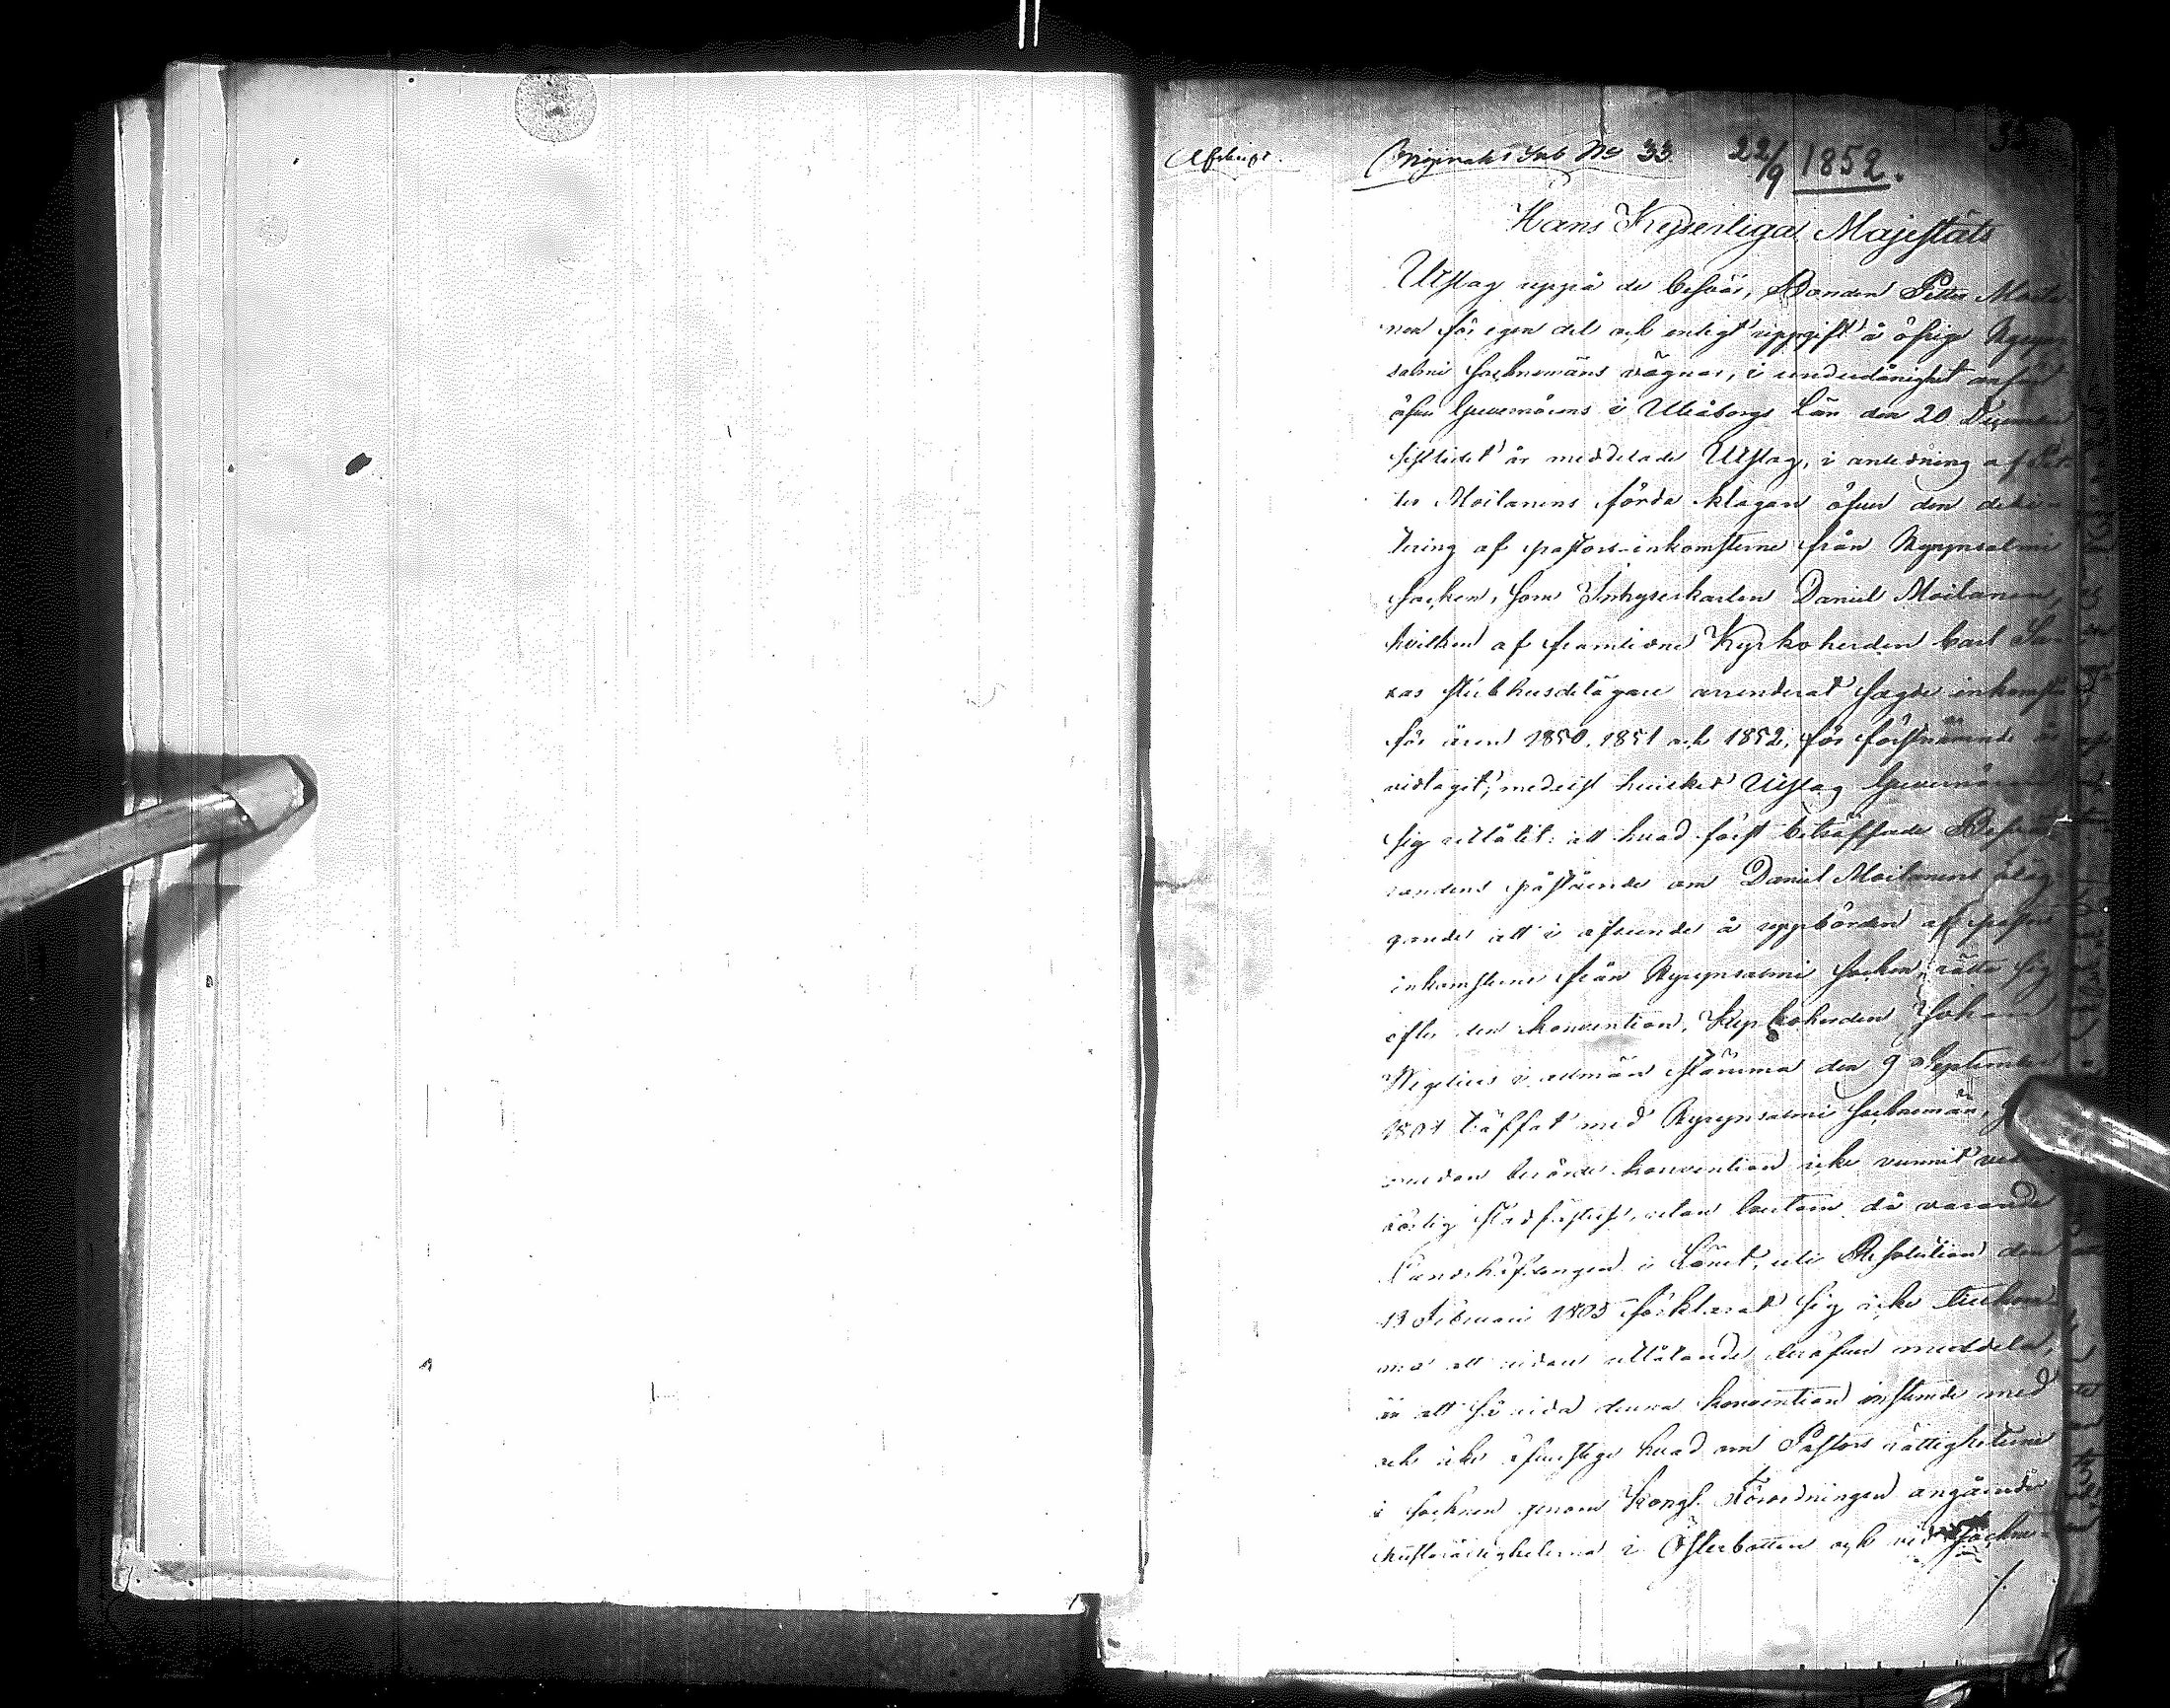 Afskrift.
Originalet Sub No 33 22/9 1852.
35
Hans Kejserliga Majestäts
Utslag uppå de besvär, Bonden Petter Moila-
nen för egen del och enligt uppgift å öfrige Kyryn-
salmi Sockenmäns vägnar, i underdånighet anfört
öfver Guvernörens i Uleåborgs Län den 20 December
sistledet år meddelade Utslag, i anledning af Pet-
ter Moilanens förda klagan öfver den debi-
tering af pastors-inkomsterne från Kyrynsalmi
Socken, som Inhyseskarlen Daniel Moilanen,
hvilken af framlidne Kyrkoherden Carl
sterbhusdelägare arrenderat sagde inkomster
för åren 1850, 1851 och 1852, för förstnämnde år
vidtagit; medelst hvilket Utslag Guvernören
sig utlåtit: att hvad först beträffade Besvä-
randens påstående om Daniel Moilanens ålig-
gande att i afseende å uppbörden af pastors
inkomsterne från Kyrynsalmi Socken, rätta sig
efter den konvention, Kyrkoherden Johan
Wegelius i allmän stämma den 9 September
1804 träffat med Kyrynsalmi Sockenmän,
berörde konvention icke vunnit veder-
börlig stadfästelse, utan tvertom då varande
Landshöfdingen i Länet, uti Resolution den
13 Februari 1805 förklarat sig icke tillkom-
ma att vidare utlåtande deröfver meddela,
än att så vida denna konvention instämde med
och icke öfverstege hvad om Pastors rättigheterne
i Socknen genom Kongl. Förordningen angående
i Österbotten och vid Sockne-